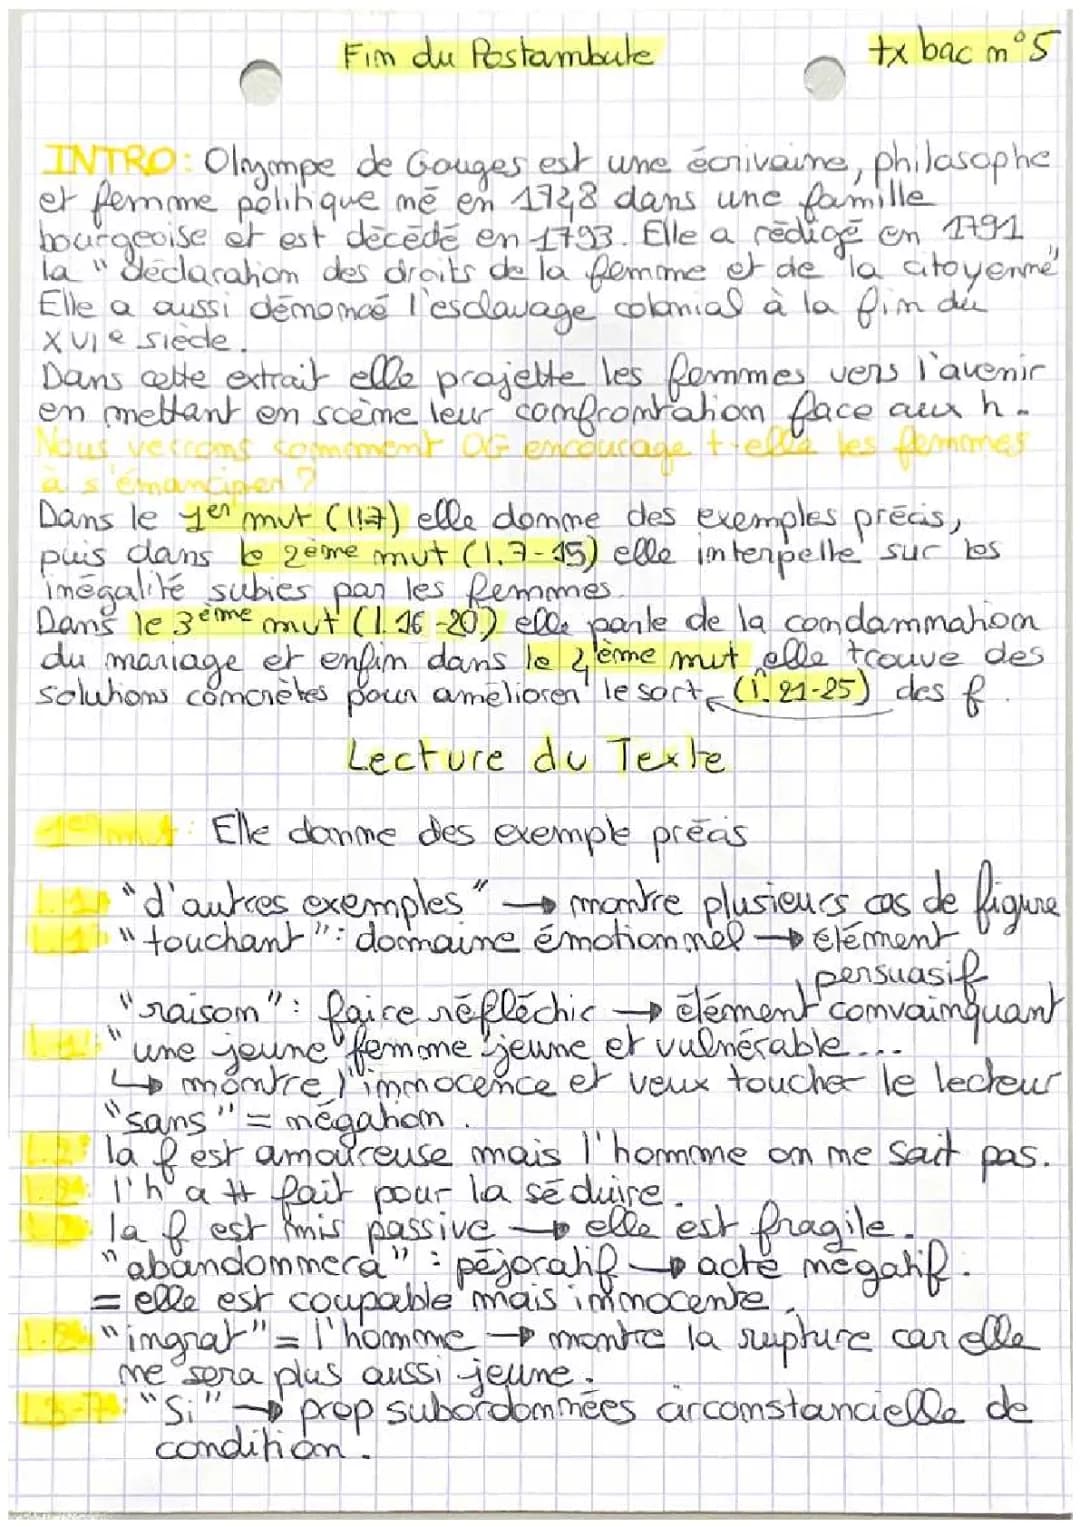 Fim du Postambule
tx bac n°5
INTRO: Olympe de Gouges est une écrivaine, philosophe
et femme politique né en 1748 dans une famille
bourgeoise et est décédé en 1793. Elle a rédigé en 1791
la "déclaration des droits de la femme et de la citoyenne"
Elle a aussi dénoncé l'esclavage colonial à la fin du
XVIe siècle.
Dans cette extrait elle projette les femmes vers l'avenir
en mettant en scène leur confrontation face aux h.
Nous verrons comment OG encourage t-elle les femmes
à s'émanciper ?
Dans le 1er mvt (l1-7) elle donne des exemples précis,
puis dans le 2ème mvt (l.7-15) elle interpelle sur les
inégalité subies par les femmes.
Dans le 3ème mvt (l.16-20) elle parle de la condamnation
du mariage et enfin dans le 4ème mvt elle trouve des
solutions concrètes pour améliorer le sort (l.21-25) des f.
Lecture du Texte
1er mvt: Elle donne des exemple précis
L.1 "d'autres exemples" → montre plusieurs cas de figure
L.1 "touchant": domaine émotionnel → élément
persuasif
"raison": faire réfléchir → élément convainquant
"une jeune femme" jeune et vulnérable...
↳ montre l'innocence et veux toucher le lecteur
"sans" = négation.
L.2 la f est amoureuse mais l'homme on ne sait pas.
L.2 l'h a tt fait pour la séduire.
L.2 la f est mis passive → elle est fragile.
"abandonnera": péjoratif → acte négatif.
= elle est coupable mais innocente.
L.2 "ingrat" = l'homme → montre la rupture car elle
ne sera plus aussi jeune.
L.3-7: "Si" → prop subordonnées circonstancielle de
condition.